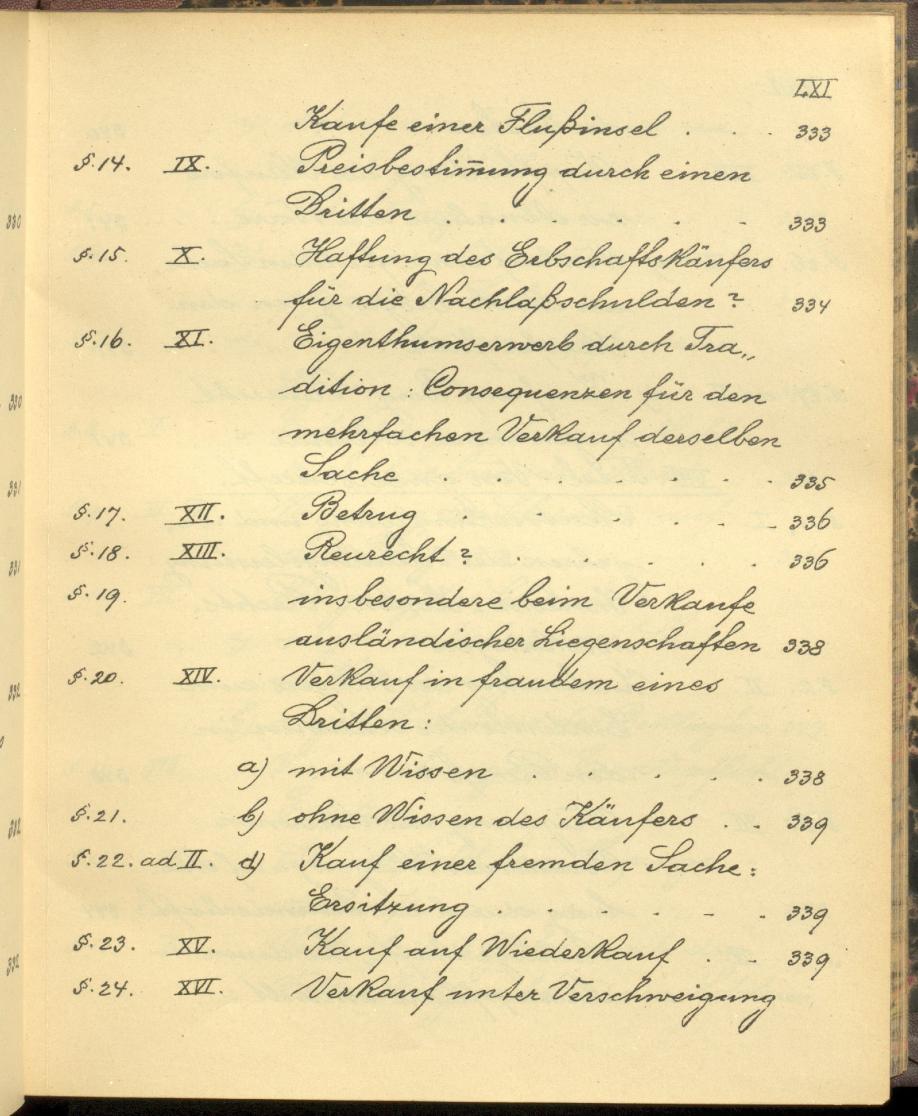 LXI
Kaufe einer Flußinsel . . . 333
§.14. IX. Preisbestim̄ung durch einen
Dritten . . . 333
§.15. X. Haftung des Erbschaftskäufers
für die Nachlaßschulden? 334
§.16. XI. Eigenthumserwerb durch Tra„
dition : Consequenzen für den
mehrfachen Verkauf derselben
Sache . . . . . . 335
§.17. XII. Betrug . . . . . 336
§.18. XIII. Reurecht? . . . 336
§.19. insbesondere beim Verkaufe
ausländischer Liegenschaften 338
§.20. XIV. Verkauf in fraudem eines
Dritten :
a) mit Wissen . . . . . 338
§.21. b) ohne Wissen des Käufers . . 339
§.22. ad II. d) Kauf einer fremden Sache:
Ersitzung . . . . . . 339
§.23. XV. Kauf auf Wiederkauf . . 339
§.24. XVI. Verkauf unter Verschweigung
330
330
331
331
332
332
332